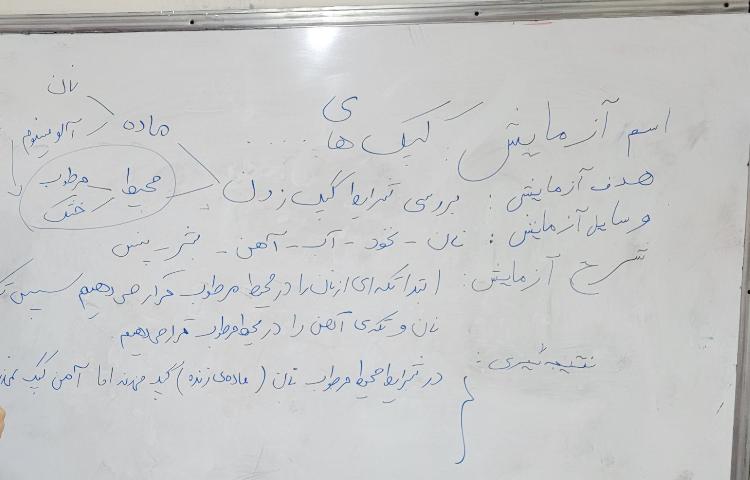 اسم آزمایش کپک های
هدف آزمایش: بررسی شرایط کپک زدن
ماده
نان
آلومینیوم
محیط
مرطوب
خشک
وسایل آزمایش: نان - نخود - آب - آهن - بشر - پنس
شرح آزمایش: ابتدا تکه ای از نان را در محیط مرطوب قرار می دهیم سپس
نان و تکه ی آهن را در محیط مرطوب قرار می دهیم.
نتیجه گیری:
در شرایط محیط مرطوب نان (ماده ی زنده) کپک میزند اما آهن کپک